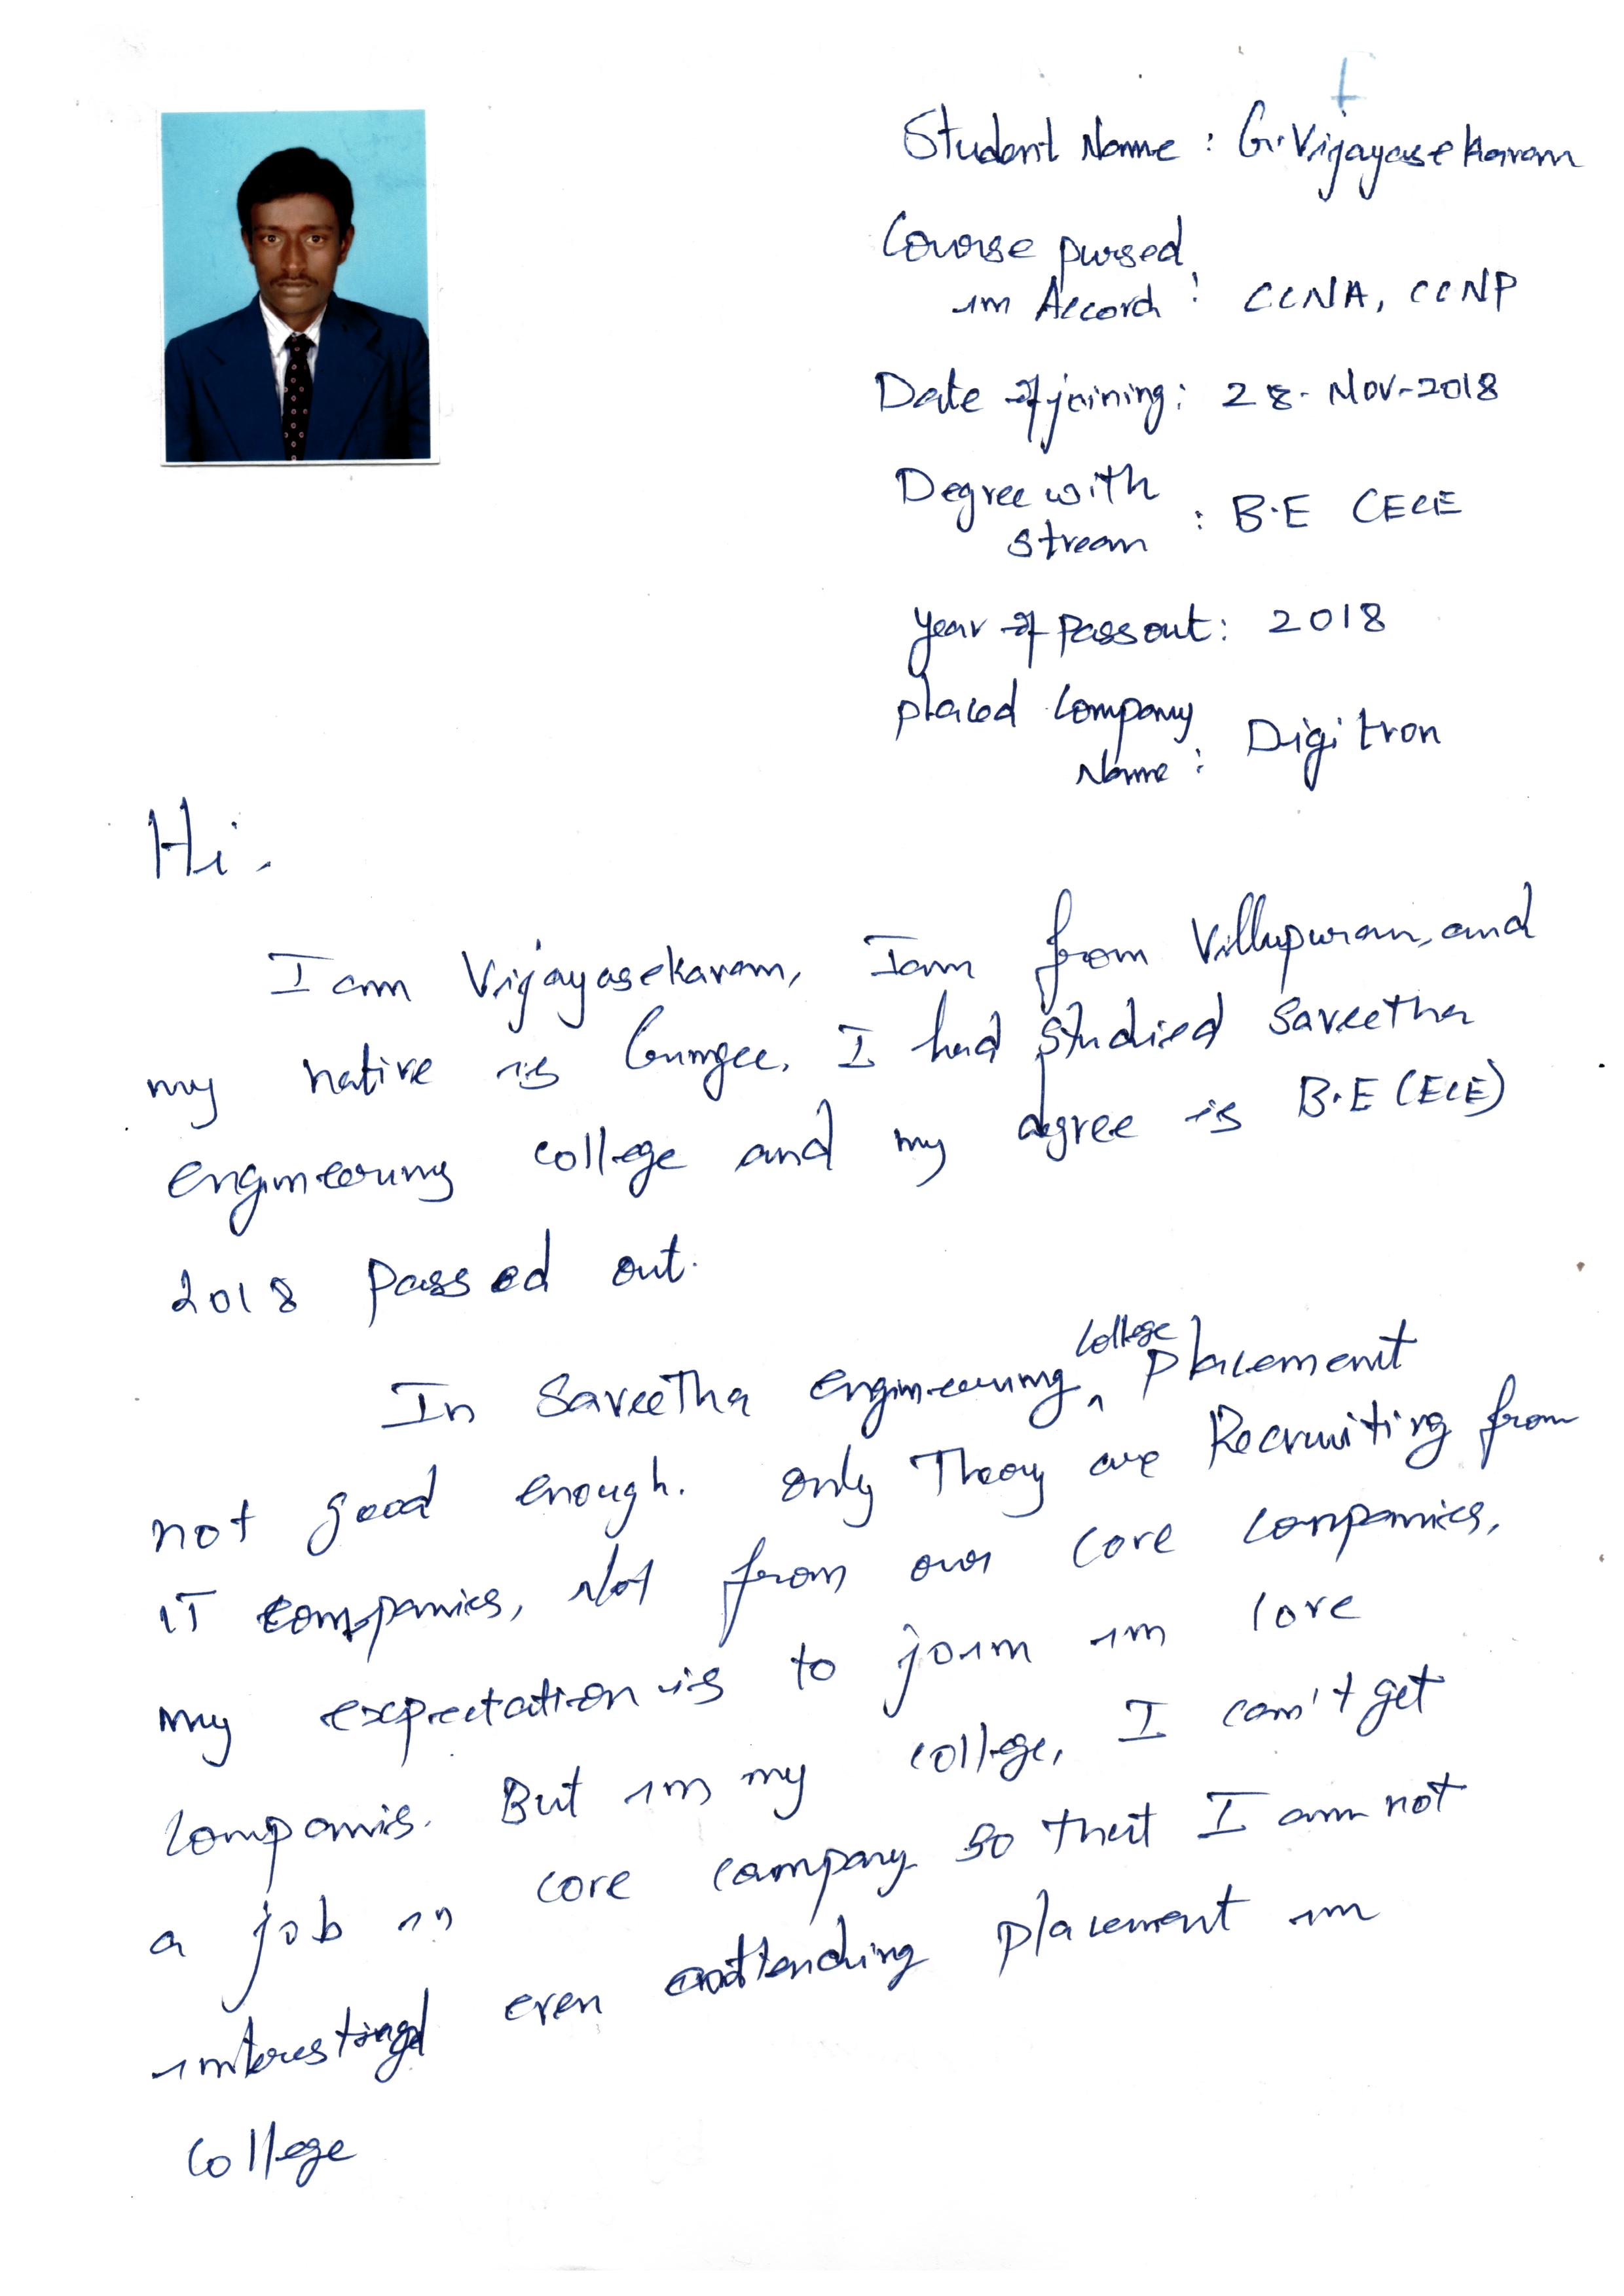 Student Name : G.Vijayasekaram
Course pursed
in Accord : CCNA, CCNP
Date of joining : 28-Nov-2018
Degree with
stream : B.E CECE
year of passout : 2018
placed Company
Name : Digitron
Hi.
I am Vijayasekaram, Iam from Villupuram, and
my native is Gumgee. I had studied Saveetha
engineering college and my degree is B.E (ECE)
2018 passed out.
In Saveetha engineering college placement
not good enough. only They are Recruiting from
IT companies, Not from our core companies.
my expectation is to join in core
companis. But in my college, I can't get
a job in core company so that I am not
interested even attending placement in
college